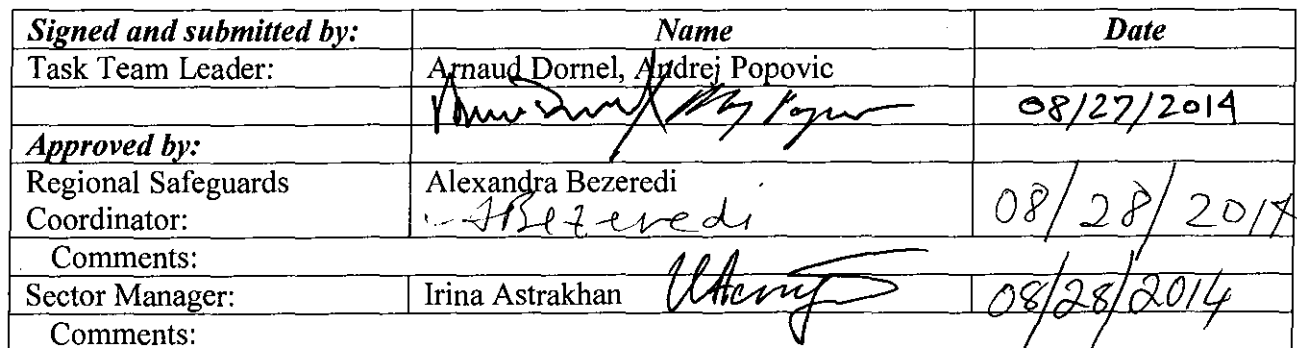 Signed and submitted by: Name Date
Task Team Leader: Arnaud Dornel, Andrej Popovic
08/27/2014
Approved by:
Regional Safeguards Alexandra Bezeredi
Coordinator: ABezeredi 08/28/2014
Comments:
Sector Manager: Irina Astrakhan 08/28/2014
Comments: